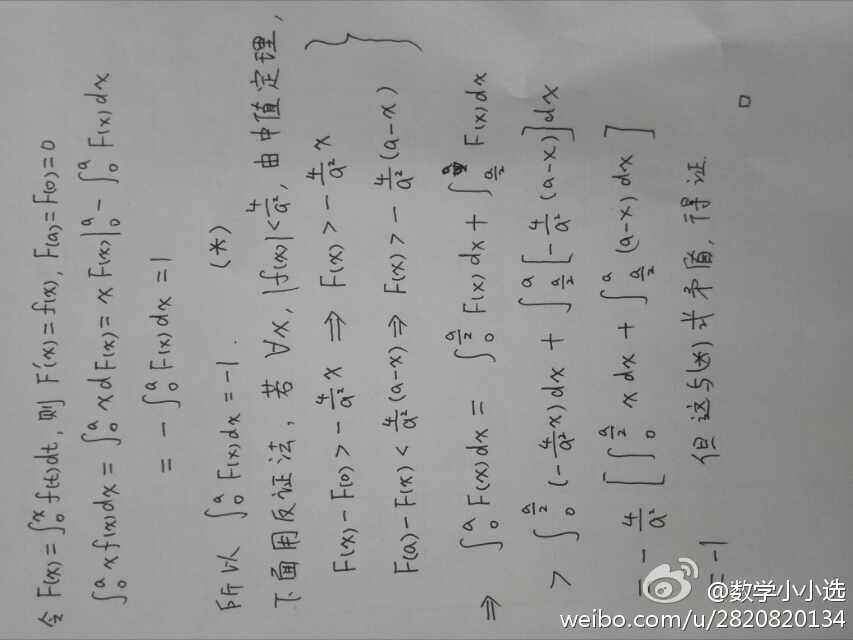 令 F(x)=∫₀ˣ f(t)dt, 则 F'(x)=f(x), F(a)=F(0)=0
∫₀ᵃ xf(x)dx = ∫₀ᵃ xdF(x) = xF(x)|₀ᵃ - ∫₀ᵃ F(x)dx
= -∫₀ᵃ F(x)dx = 1
所以 ∫₀ᵃ F(x)dx = -1. (*)
下面用反证法, 若 ∀x, |f(x)|<4/a², 由中值定理,
F(x)-F(0)>-4/a² x ⇒ F(x)>-4/a² x
F(a)-F(x)<4/a² (a-x) ⇒ F(x)>-4/a² (a-x) }
⇒ ∫₀ᵃ F(x)dx = ∫₀^(a/2) F(x)dx + ∫_(a/2)^a F(x)dx
> ∫₀^(a/2) (-4/a² x)dx + ∫_(a/2)^a [-4/a² (a-x)]dx
= -4/a² [∫₀^(a/2) xdx + ∫_(a/2)^a (a-x)dx]
= -1 但这与(*)式矛盾, 得证. □
@数学小小选
weibo.com/u/2820820134